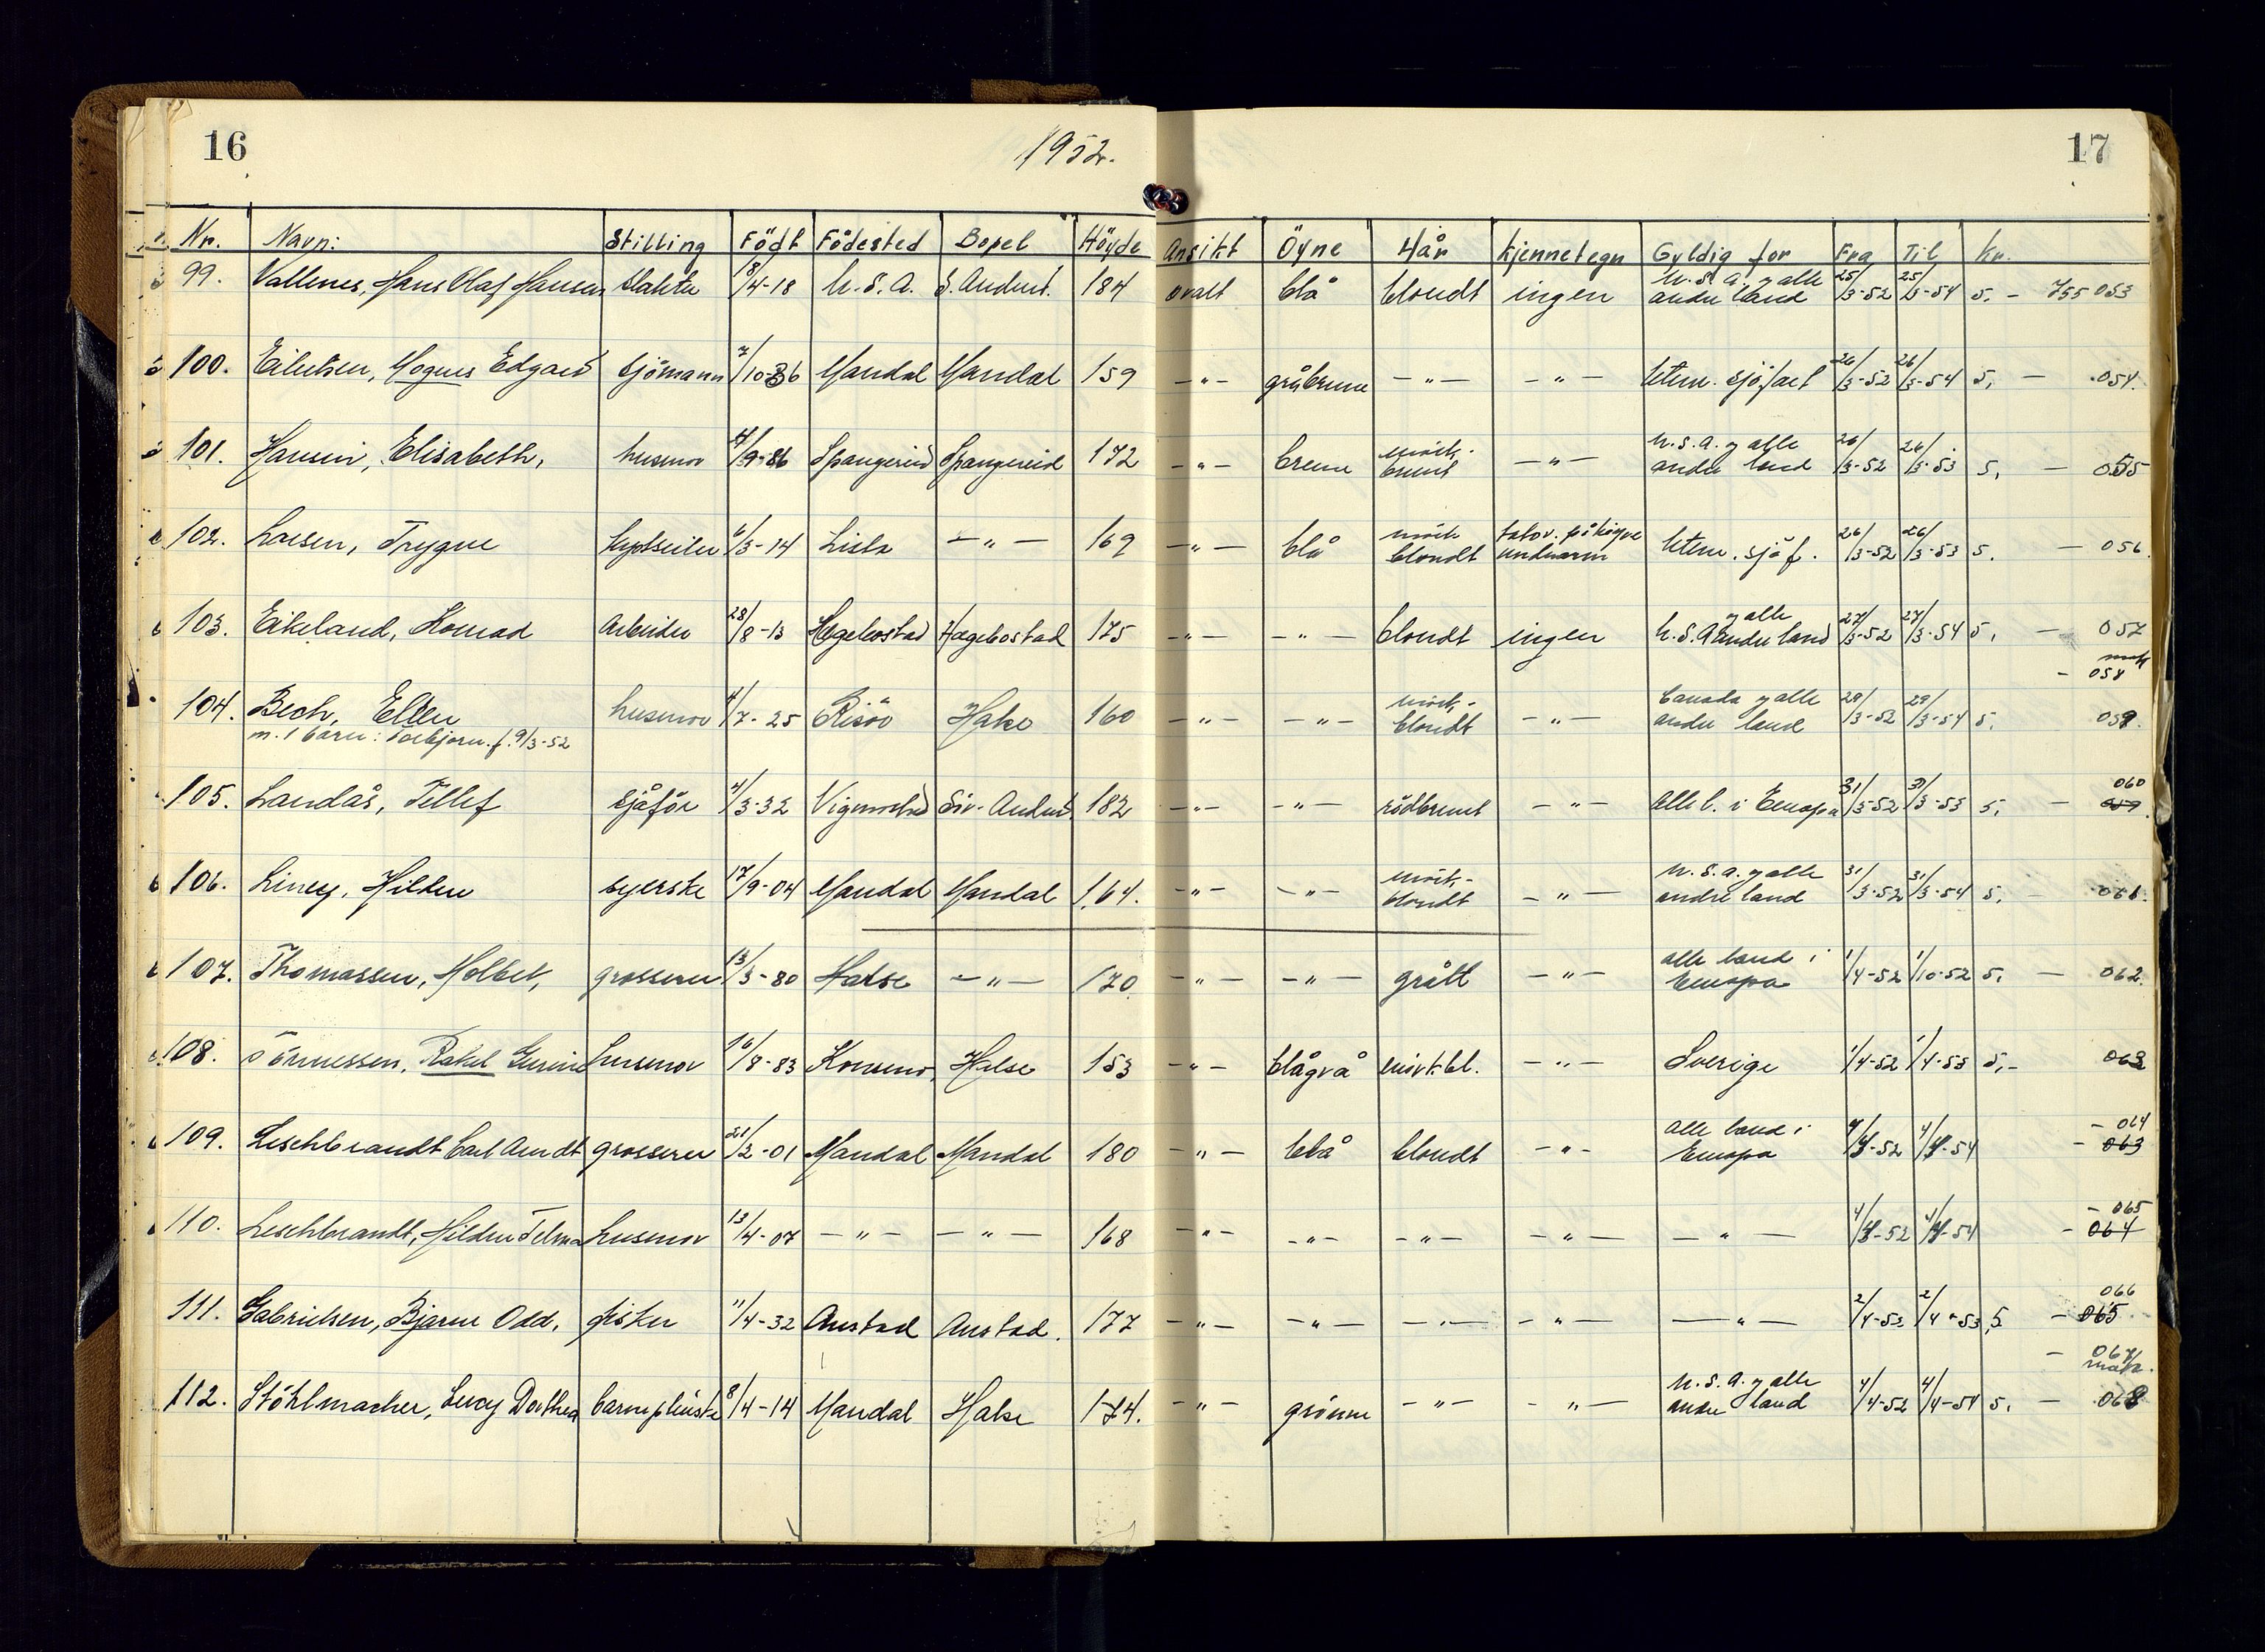 16
1952.
17
Nr. Navn: Stilling Födt Födested Bopel Höyde Ansikt Öyne Hår Kjennetegn Gyldig for Fra Til Kr.
99. Vallenes, Hans Olaf Hansen slakter 8/4-18 U.S.A. S. Audned. 184 ovalt blå blondt ingen U.S.A. og alle andre land 25/3-52 25/3-54 5. - 755053
100. Eilertsen, Magnus Edgard sjömann 7/10-36 Mandal Mandal 159 -"- gråbrune -"- -"- utenr. sjöfart 26/3-52 26/3-54 5, - 054.
101. Hansen, Elisabeth, husmor 4/9-86 Spangereid Spangereid 172 -"- brune mörk-brunt -"- U.S.A. og alle andre land 26/3-52 26/3-53 5, - 055
102. Larsen, Trygve 6/3-14 Lista -"- 169 -"- blå mörk blondt tatov. på högre underarm utenr. sjöf. 26/3-52 26/3-53 5. - 056.
103. Eikeland, Konrad Arbeider 28/8-13 Hægebostad Hægebostad 175 -"- -"- blondt ingen U.S.A. og alle andre land 27/3-52 27/3-54 5, - 057
mak - 058
104. Bech, Ellen husmor 4/7-25 Risör Halse 160 -"- -"- mörk-blondt -"- Canada og alle andre land 29/3-52 29/3-54 5. 059.
m. 1 barn: Torbjørn f. 9/3-52
105. Landås, Tellef sjåför 4/3-32 Vigmostad Sör-Audned. 182 -"- -"- rödbrunt -"- alle l. i Europa 31/3-52 31/3-53 5, - 060 059.
106. Liney, Hildur syerske 17/9-04 Mandal Mandal 164. -"- -"- mörk-blondt -"- U.S.A. og alle andre land 31/3-52 31/3-54 5, - 061.
107. Thomassen, Holbet, grosserer 13/3-80 Halse -"- 170. -"- -"- grått -"- alle land i Europa 1/4-52 1/10-52 5, - 062.
108. Tönnessen, Rakel husmor 16/8-83 Konsmo, Halse 153 -"- blågrå mörkbl. -"- Sverige 1/4-52 1/4-53 5,- 063
109. Leschbrandt Carl Arndt grosserer 21/2-01 Mandal Mandal 180 -"- blå blondt -"- alle land i Europa 4/4-52 4/4-54 - 064 - 063
110. Leschbrandt, Hildur Telma husmor 13/4-07 -"- -"- 168 -"- -"- -"- -"- -"- 4/4-52 4/4-54 - 065 - 064
111. Gabrielsen, Bjarne Odd, fisker 11/4-32 Austad Austad. 177 -"- -"- -"- -"- -"- 2/4-53 2/4-53 5 066 - 065
- 067/mak.
112. Stöhlmacher, Lucy Dorthea barnepleierske 8/4-14 Mandal Halse 174. -"- grönne -"- -"- U.S.A. og alle andre land 4/4-52 4/4-54 5, - 068